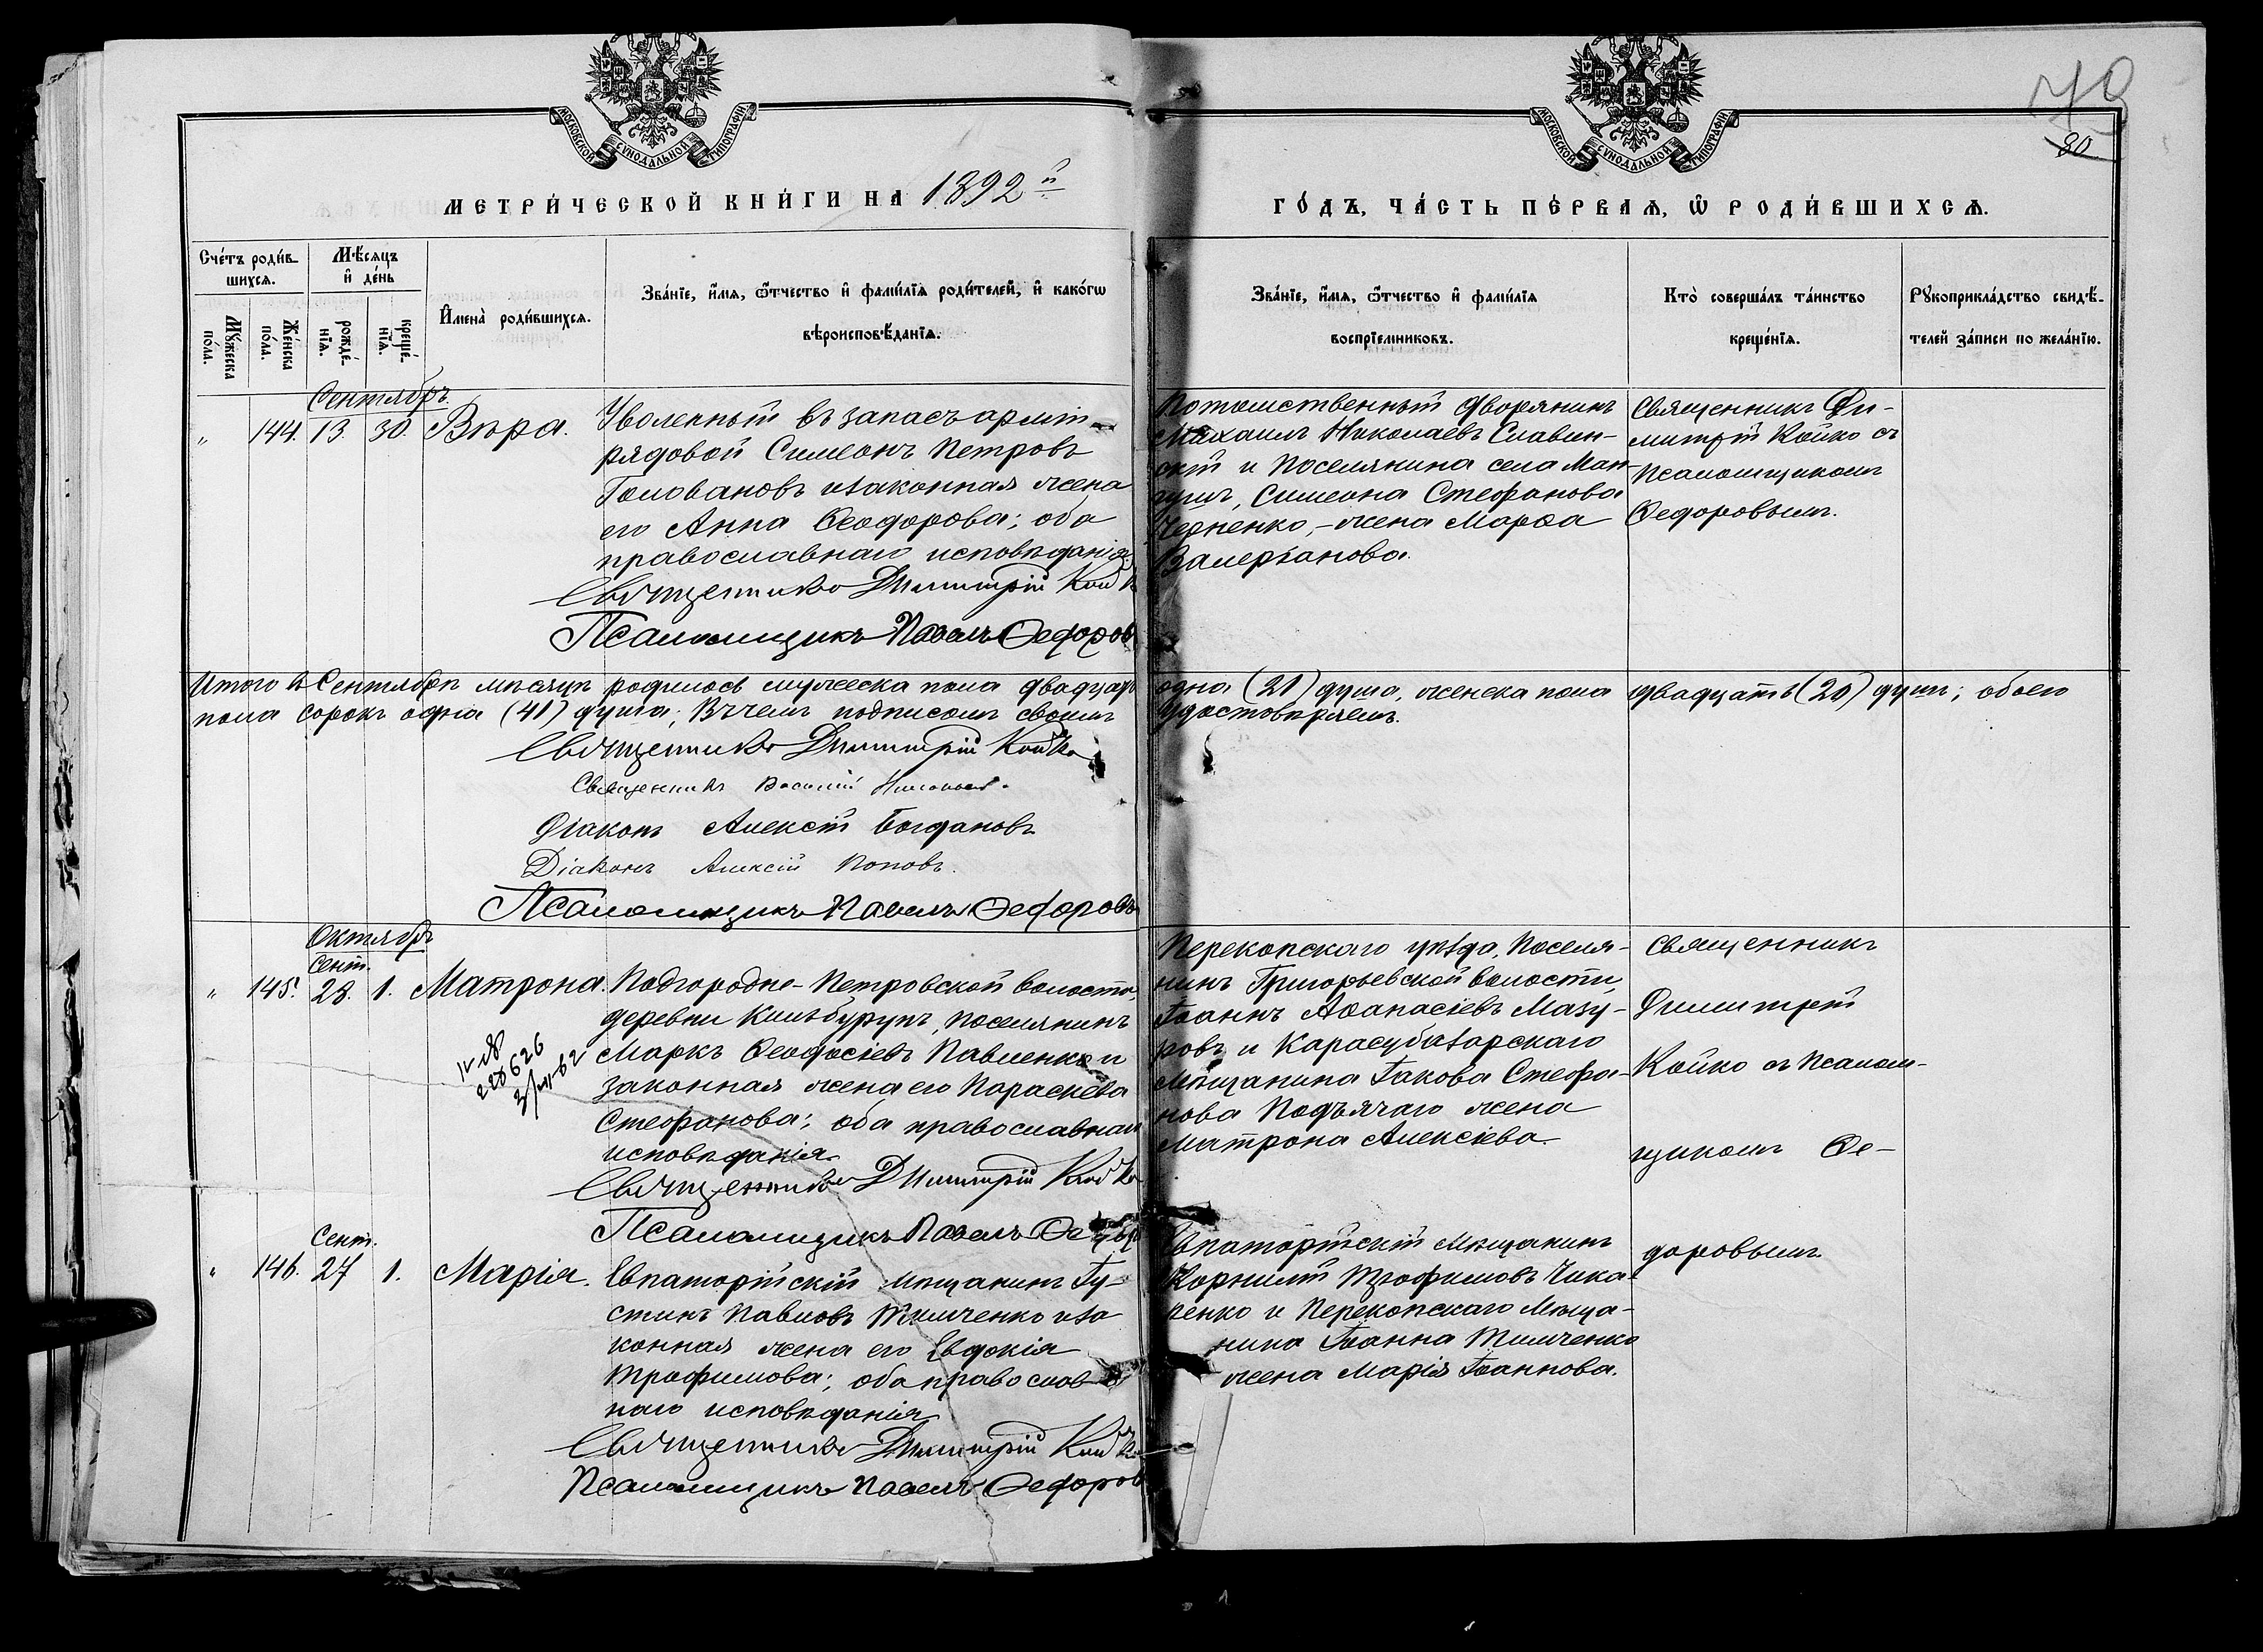 79
80
МОСКОВСКОЙ СѴНОДАЛЬНОЙ ТИПОГРАФІИ
МОСКОВСКОЙ СѴНОДАЛЬНОЙ ТИПОГРАФІИ
МЕТРИ́ЧЕСКОЙ КНИ́ГИ НА 1892й
ГО́ДЪ, ЧА́СТЬ ПЕ́РВАѦ, Ѡ РОДИ́ВШИХСѦ.
Сче́тъ роди́в-
шихсѧ.
Мѣ́сѧцъ
и де́нь
Мꙋ́жеска
по́ла.
Же́нска
по́ла.
рожде́-
нїѧ.
креще́-
нїѧ.
Имена̀ роди́вшихсѧ.
Зва́нїе, и́мѧ, ѻ́тчество и фами́лїѧ роди́телей, и како́гѡ
вѣроисповѣ́данїѧ.
Зва́нїе, и́мѧ, ѻ́тчество и фами́лїѧ
воспрїе́мниковъ.
Кто̀ соверша́лъ та́инство
креще́нїѧ.
Рꙋкоприкла́дство свидѣ́-
телей за́писи по жела́нїю.
Сентябрь.
" 144. 13. 30. Вѣра.
Уволенный въ запасъ арміи
рядовой Симеонъ Петровъ
Головановъ и законная жена
его Анна Ѳеодорова; оба
православнаго исповѣданія
Священникъ Димитрій Койко
Псаломщикъ Павелъ Ѳедоров
Потомственный дворянинъ
Михаилъ Николаевъ Славин-
скій и поселянина села Ман-
гушъ, Симеона Стефанова
Черненко, – жена Марѳа
Валеріанова.
Священникъ Ди-
митрій Койко съ
Псаломщикомъ
Ѳедоровымъ.
Итого въ Сентябрѣ мѣсяцѣ родилось мужеска пола двадцать одна (21) душа, женска пола двадцать (20) душъ; обоего
пола сорокъ одна (41) душа; Въ чемъ подписомъ своимъ удостовѣряемъ.
Священникъ Димитрій Койко
Священникъ Василій
Діаконъ Алексій Богдановъ
Діаконъ Алексій Поповъ.
Псаломщикъ Павелъ Ѳедоровъ
Октябрь
Сент.
" 145. 28. 1. Матрона.
Подгородне-Петровской волости,
деревни Кильбурунъ, поселянинъ
Маркъ Ѳеодосіевъ Павленко и
законная жена его Параскева
Стефанова; оба православнаго
исповѣданія.
Священникъ Димитрій Койко
Псаломщикъ Павелъ Ѳе
220626
Перекопскаго уѣзда, Поселя-
нинъ Григорьевской волости
Іоаннъ Аѳанасіевъ Мазу-
ровъ и Карасубазарскаго
Мѣщанина Іакова Стефа-
нова Подъячаго жена
Матрона Алексіева.
Священникъ
Димитрій
Койко съ Псалом-
щикомъ Ѳе-
доровымъ.
Сент.
" 146. 27 1. Марія.
Евпаторійскій Мѣщанинъ Іу-
стинъ Павловъ Тимченко и за
конная жена его Евдокія
Трофимова; оба православ
наго исповѣданія
Священникъ Димитрій Койко
Псаломщикъ Павелъ Ѳедоров
Евпаторійскій Мѣщанинъ
Корнилій Трофимовъ Чика-
ленко и Перекопскаго Мѣща-
нина Іоанна Тимченко
жена Марія Іоаннова.